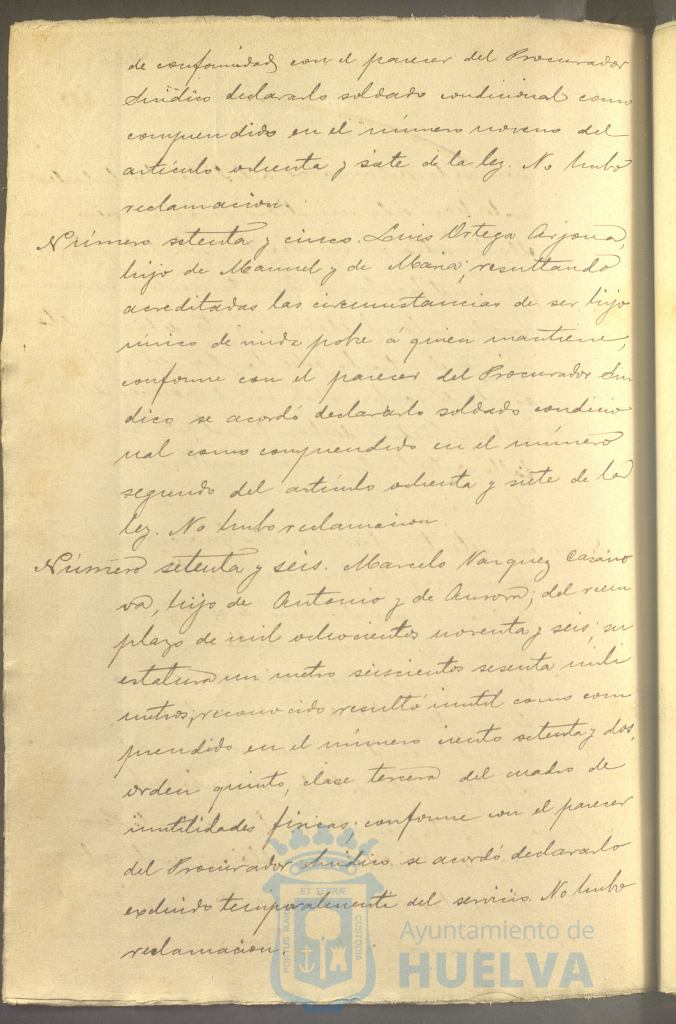 de conformidad con el parecer del Procurador
Sindico declararlo soldado condicional como
comprendido en el número noveno del
artículo ochenta y siete de la ley. No hubo
reclamacion.
Número setenta y cinco. Luis Ortega Arjona,
hijo de Manuel y de Maria; resultando
acreditadas las circunstancias de ser hijo
único de viuda pobre á quien mantiene,
conforme con el parecer del Procurador Sin
dico se acordó declararlo soldado condicio
nal como comprendido en el número
segundo del artículo ochenta y siete de la
ley. No hubo reclamacion.
Número setenta y seis. Marcelo Vazquez Casano
va, hijo de Antonio y de Aurora; del reem
plazo de mil ochocientos noventa y seis; su
estatura un metro seiscientos sesenta mili
metros; reconocido resultó inutil como com
prendido en el número ciento setenta y dos,
orden quinto, clase tercera del cuadro de
inutilidades físicas; conforme con el parecer
del Procurador Sindico se acordó declararlo
excluido temporalmente del servicio. No hubo
reclamacion.
ET TERRÆ
PORTUS MARIS
CUSTODIA
Ayuntamiento de
HUELVA